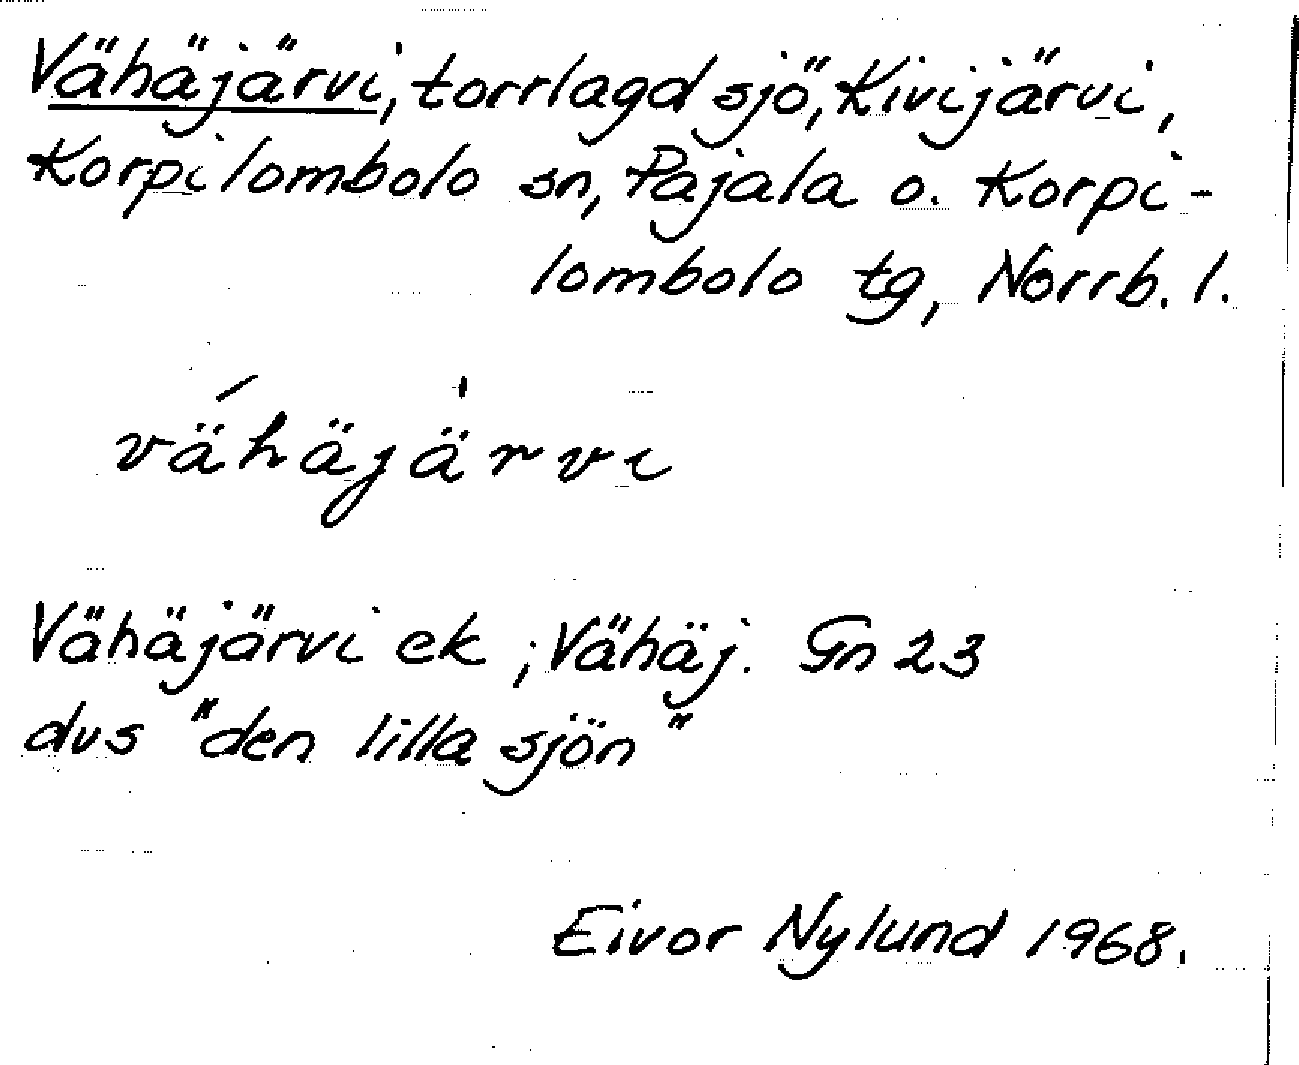 Vähäjärvi, torrlagd sjö, Kivijärvi,
Korpilombolo sn, Pajala o. Korpi-
lombolo tg, Norrb. l.
vä́häjä̀rvi
Vähäjärvi ek ; Vähäj. Gn 23
dvs "den lilla sjön"
Eivor Nylund 1968.